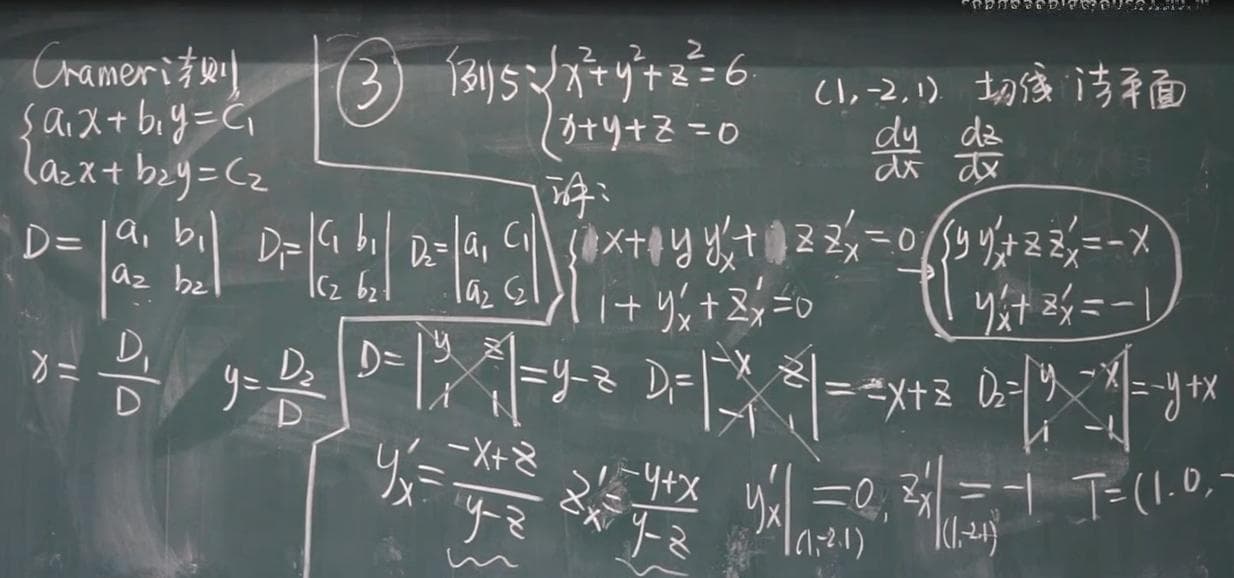 Cramer法则
{a₁x+b₁y=C₁
{a₂x+b₂y=C₂
D=|a₁ b₁|
|a₂ b₂|
D₁=|C₁ b₁|
|C₂ b₂|
D₂=|a₁ C₁|
|a₂ C₂|
x=D₁/D y=D₂/D
③ 例5:{x²+y²+z²=6
{x+y+z=0
(1,-2,1) 切线 法平面
dy/dx dz/dx
解:
{x+yy'ₓ+zz'ₓ=0
{1+y'ₓ+z'ₓ=0
→{yy'ₓ+zz'ₓ=-x
{y'ₓ+z'ₓ=-1
D=|y z|
|1 1|=y-z
D₁=|-x z|
|-1 1|=-x+z
D₂=|y -x|
|1 -1|=-y+x
y'ₓ=(-x+z)/(y-z) z'ₓ=(-y+x)/(y-z) y'ₓ|(1,-2,1)=0, z'ₓ|(1,-2,1)=-1 T=(1.0,-